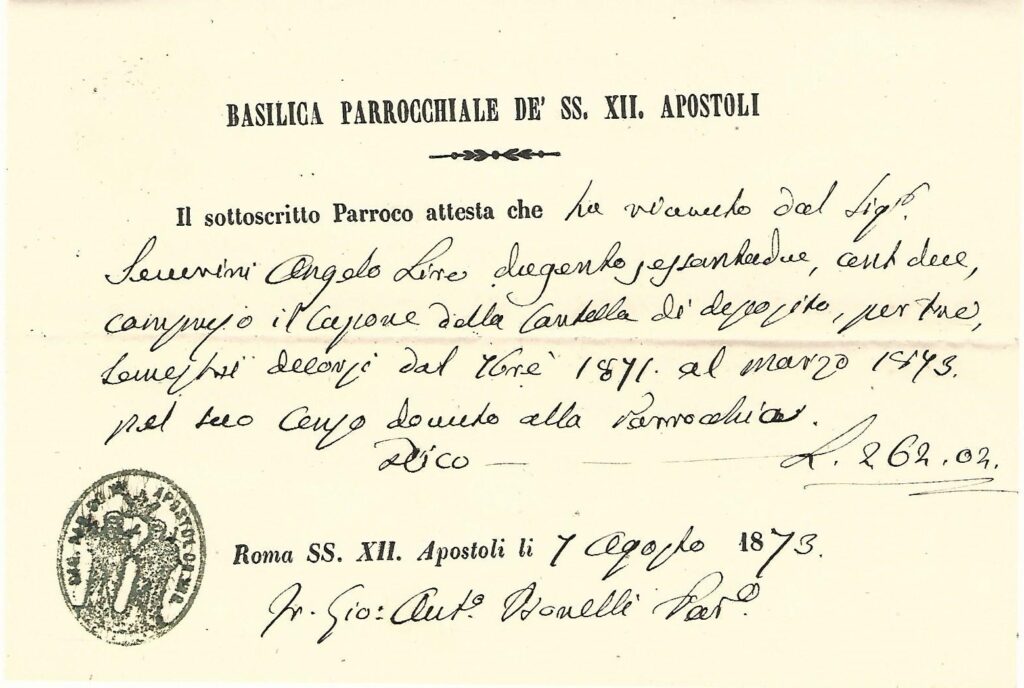 BASILICA PARROCCHIALE DE' SS. XII. APOSTOLI
Il sottoscritto Parroco attesta che ha ricevuto dal Sigr.
Severini Angelo Lire dugento sessantadue, cent due,
compreso il della Cartella di deposito, per tre,
semestri decorsi dal 7bre 1871. al marzo 1873.
pel suo Censo dovuto alla Parrocchia.
Dico — — L. 262.02.
APOSTOLOR.
Roma SS. XII. Apostoli li 7 Agosto 1873.
Fr. Gio: Anto. Bonelli Paro.